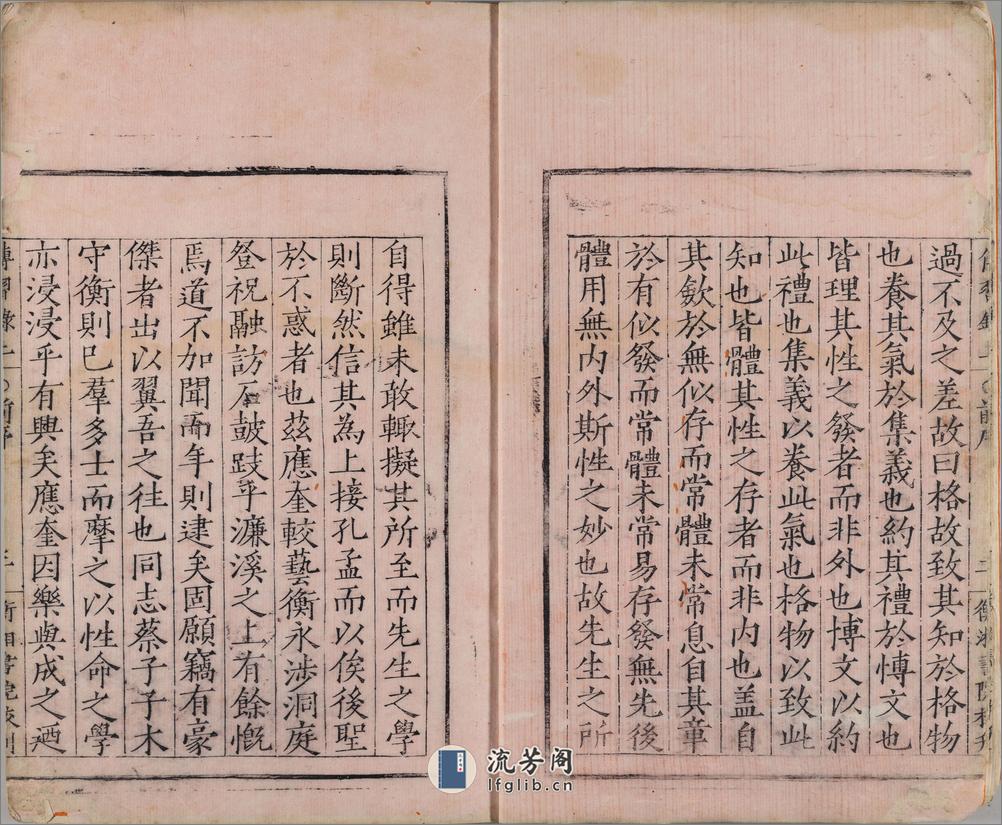 過不及之差故曰格故致其知於格物
也養其氣於集義也約其禮於博文也
皆理其性之發者而非外也博文以約
此禮也集義以養此氣也格物以致此
知也皆體其性之存者而非內也盖自
其斂於無似存而常體未常息自其章
於有似發而常體未常易存發無先後
體用無内外斯性之妙也故先生之所
自得雖未敢輙擬其所至而先生之學
則斷然信其為上接孔孟而以俟後聖
於不惑者也茲應奎較藝衡永涉洞庭
登祝融訪石鼓跂乎濂溪之上有餘慨
焉道不加聞而年則逮矣固願竊有豪
傑者出以翼吾之往也同志蔡子子木
守衡則已羣多士而摩之以性命之學
亦浸浸乎有興矣應奎因樂與成之廼
流芳阁
lfglib.cn